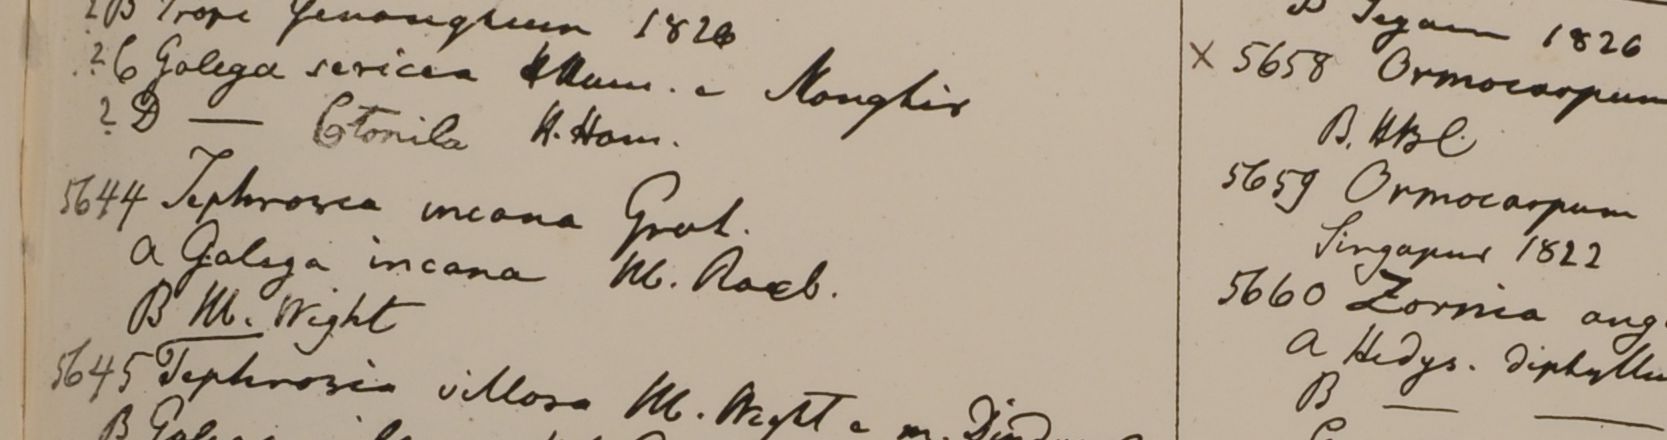 ? B Prope Yenanghuen 1826
? C Galega sericea HHam. e Monghir
? D — Ctonila H. Ham.
5644 Tephrosia incana Grah.
a Galega incana H. Roxb.
B H. Wight
5645 Tephrosia villosa H. Wight e m. Dind
B Galega
B Segaen 1826
× 5658 Ormocarpum
B. HBC
5659 Ormocarpum
Singapur 1822
5660 Zornia ang
a Hedys. diphyllu
B — —